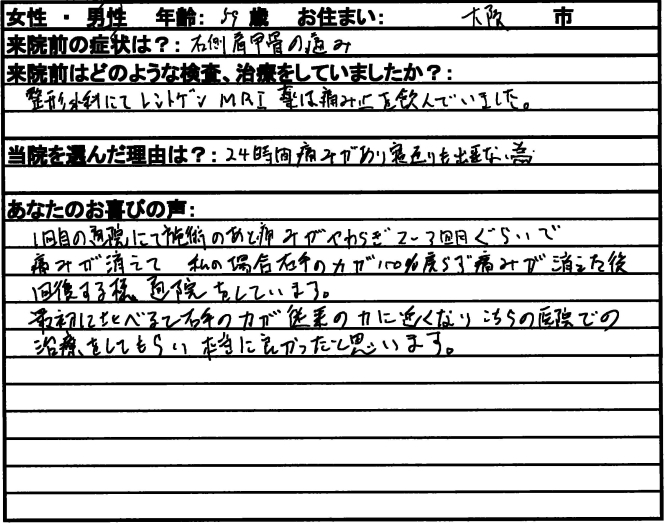 女性 ・ 男性 年齢: 59 歳 お住まい: 大阪 市
来院前の症状は？: 右側肩甲骨の痛み
来院前はどのような検査、治療をしていましたか？:
整形外科にてレントゲン MRI 薬は痛み止を飲んでいました。
当院を選んだ理由は？: 24時間痛みがあり寝返りも出来ない為
あなたのお喜びの声:
1回目の通院にて施術のあと痛みがやわらぎ2~3回目ぐらいで
痛みが消えて 私の場合右手の力が100%戻らず痛みが消えた後
回復する様、通院をしています。
最初に比べるて右手の力が従来の力に近くなりこちらの医院での
治療をしてもらい本当に良かったと思います。